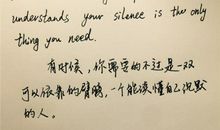 understands your silence is the only
thing you need.
有时候，你需要的不过是一双
可以依靠的臂膀，一个能读懂自己沉默
的人。